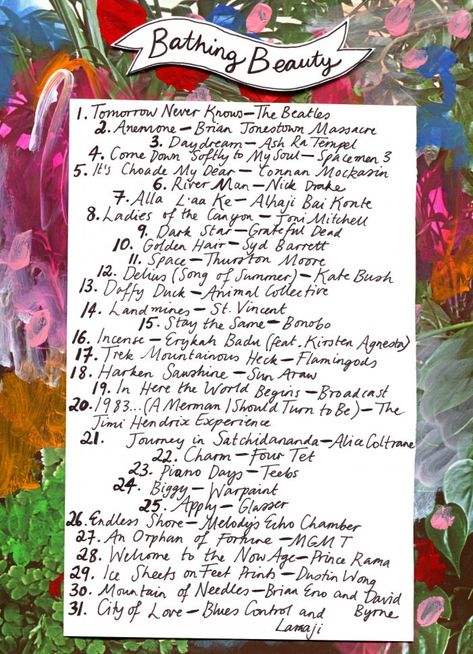 Bathing Beauty
1. Tomorrow Never Knows – The Beatles
2. Anemone – Brian Jonestown Massacre
3. Daydream – Ash Ra Tempel
4. Come Down Softly to My Soul – Spacemen 3
5. It's Choade My Dear – Connan Mockasin
6. River Man – Nick Drake
7. Alla L'aa Ke – Alhaji Bai Konte
8. Ladies of the Canyon – Joni Mitchell
9. Dark Star – Grateful Dead
10. Golden Hair – Syd Barrett
11. Space – Thurston Moore
12. Delius (Song of Summer) – Kate Bush
13. Daffy Duck – Animal Collective
14. Landmines – St. Vincent
15. Stay the Same – Bonobo
16. Incense – Erykah Badu (feat. Kirsten Agnesta)
17. Trek Mountainous Heck – Flamingods
18. Harken Sawshine – Sun Araw
19. In Here the World Begins – Broadcast
20. 1983... (A Merman I Should Turn to Be) – The
Jimi Hendrix Experience
21. Journey in Satchidananda – Alice Coltrane
22. Charm – Four Tet
23. Piano Days – Teebs
24. Biggy – Warpaint
25. Apply – Glasser
26. Endless Shore – Melody's Echo Chamber
27. An Orphan of Fortune – MGMT
28. Welcome to the Now Age – Prince Rama
29. Ice Sheets on Feet Prints – Dustin Wong
30. Mountain of Needles – Brian Eno and David
Byrne
31. City of Love – Blues Control and
Lamaji